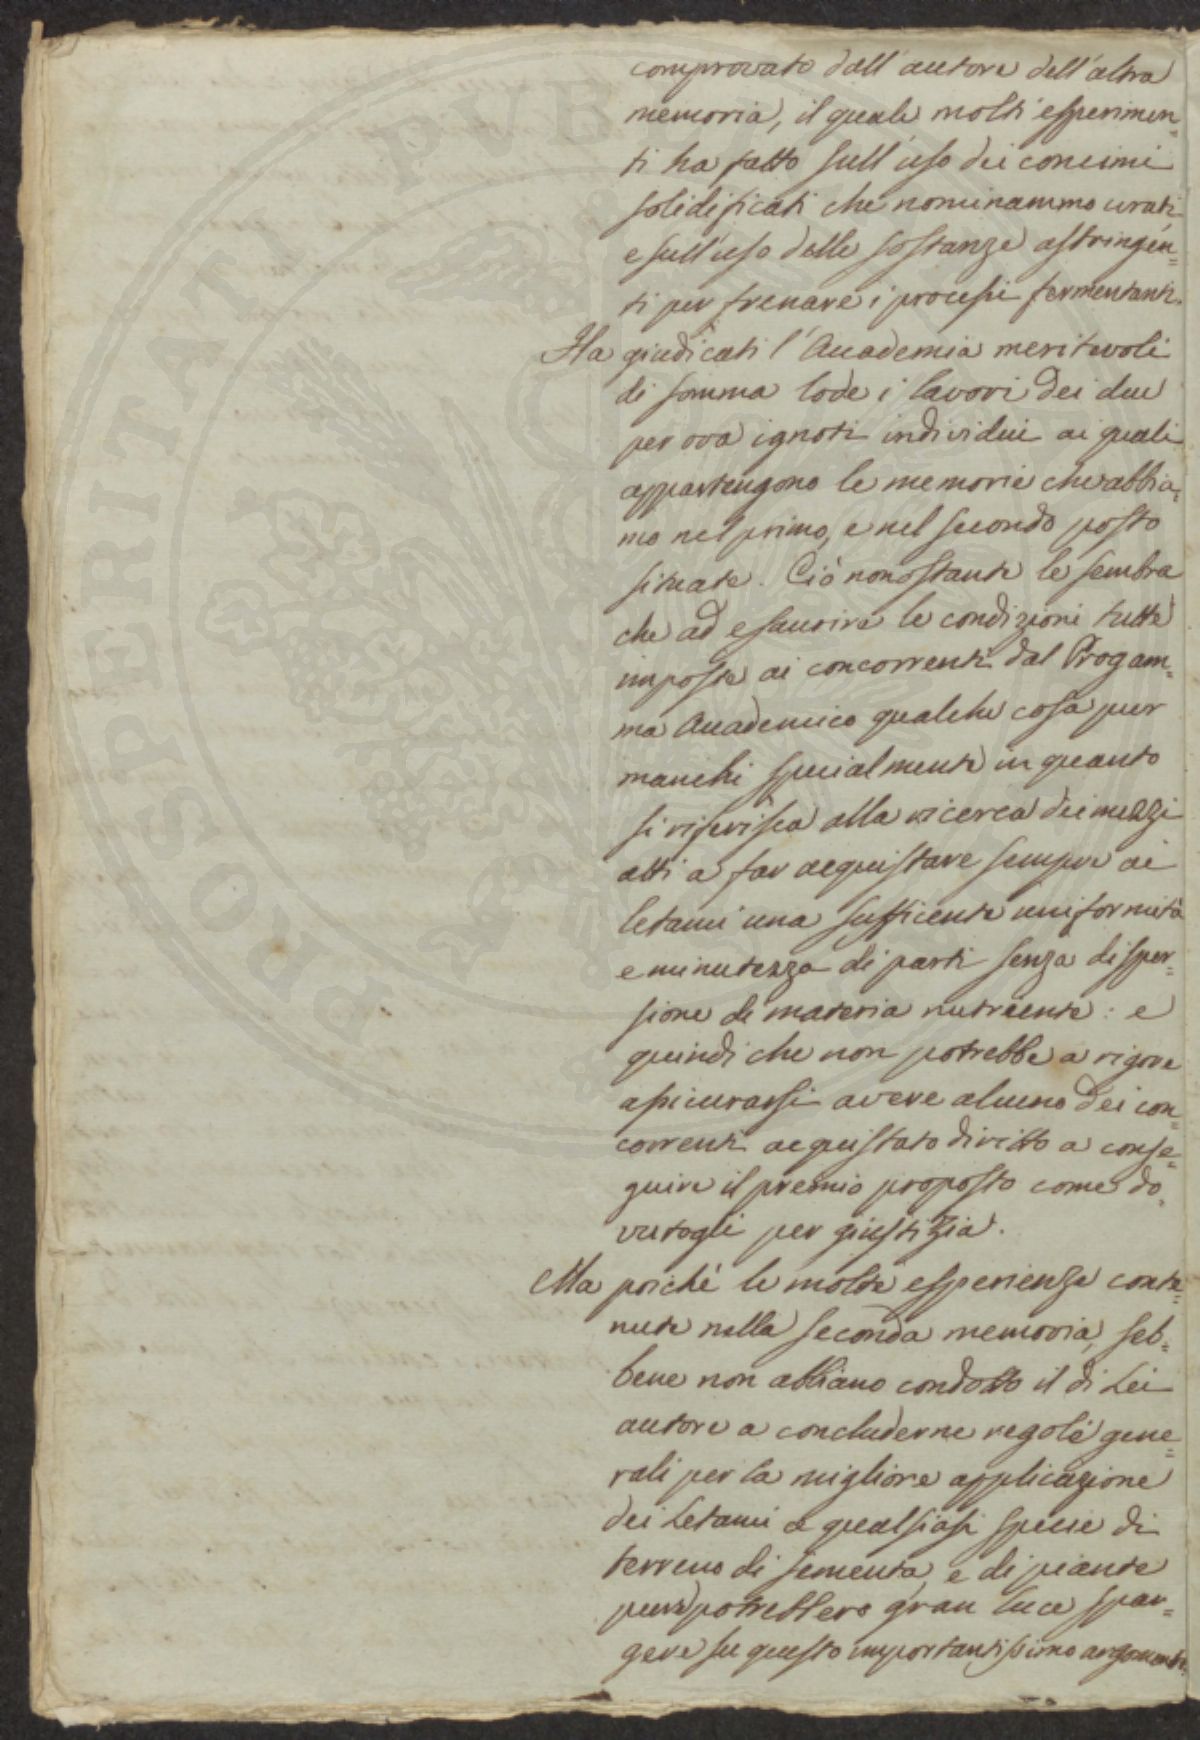 comprovato dall'autore dell'altra
memoria, il quale molti esperimen=
ti ha fatto sull'uso dei concimi
solidificati che nominammo urati
e sull'uso delle sostanze astringen=
ti per frenare i processi fermentanti.
Ha giudicati l'Accademia meritevoli
di somma lode i lavori dei due
per ora ignoti individui ai quali
appartengono le memorie che abbia=
mo nel primo, e nel secondo posto
situate. Ciò nonostante le sembra
che ad esaurire le condizioni tutte
imposte ai concorrenti dal Progam=
ma Accademico qualche cosa pur
manchi specialmente in quanto
si riferisca alla ricerca dei mezzi
atti a far acquistare sempre ai
letami una sufficente uniformità
e minutezza di parti senza disper=
sione di materia nutriente: e
quindi che non potrebbe a rigore
assicurarsi avere alcuno dei con=
correnti acquistato diritto a conse=
guire il premio proposto come do=
vutogli per giustizia.
Ma poichè le molte esperienze conte=
nute nella seconda memoria, seb=
bene non abbiano condotto il di Lei
autore a concluderne regole gene=
rali per la migliore applicazione
dei Letami a qualsiasi specie di
terreno di sementa, e di piante
pure potrebbero gran luce spar=
gere su questo importantissimo argomento
PROSPERITATI PUBL